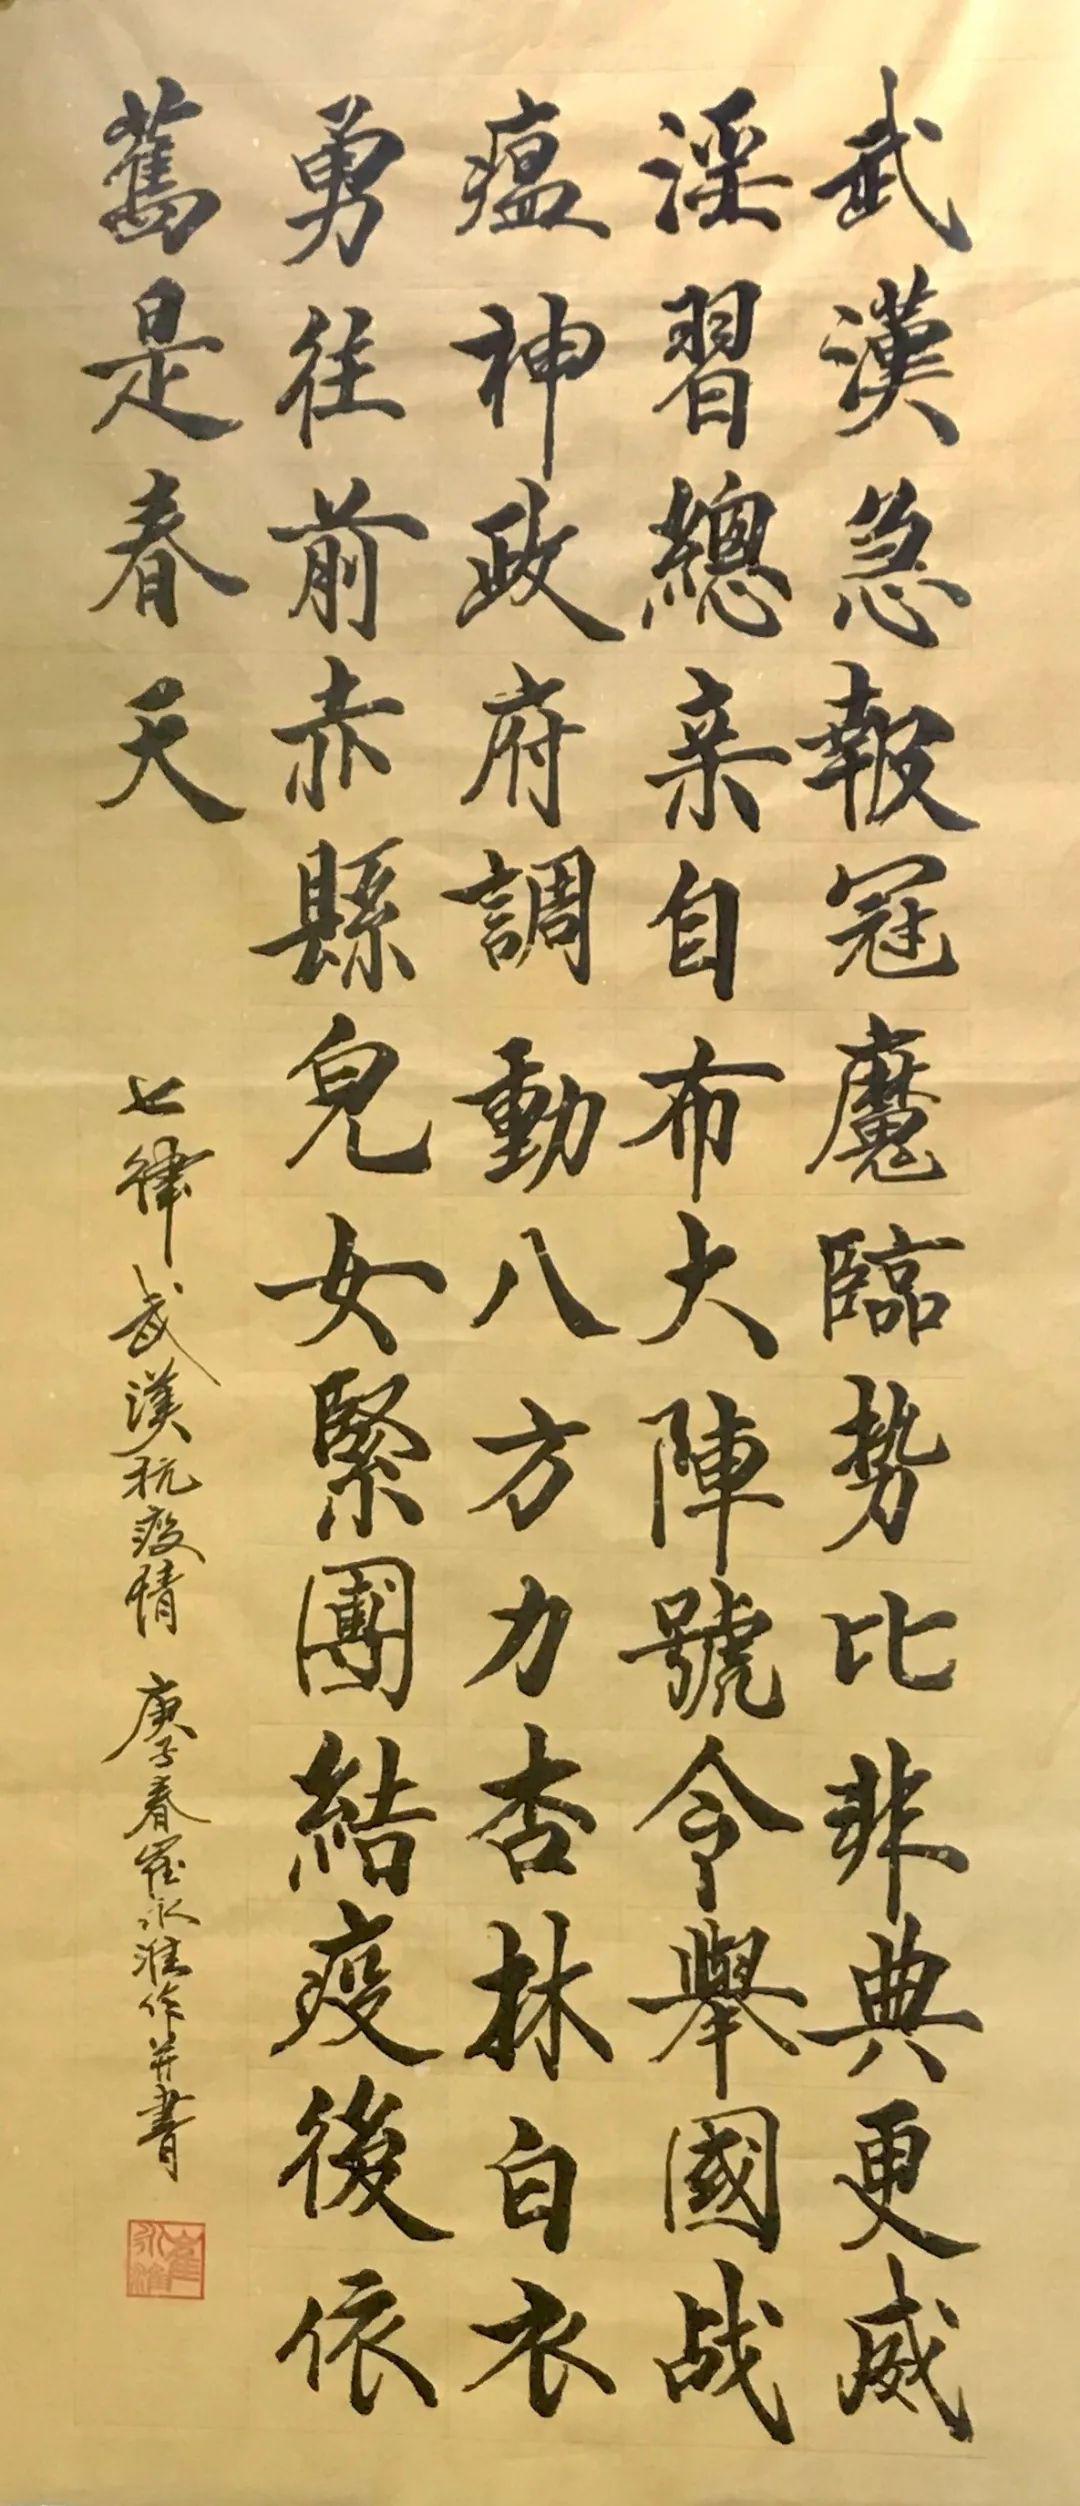 武漢急報冠魔臨勢比非典更威
淫習總亲自布大陣號令舉國战
瘟神政府調動八方力杏林白衣
勇往前赤縣兒女緊團結疫後依
舊是春天
七律武漢抗疫情 庚子春崔永淮作并書
崔永淮